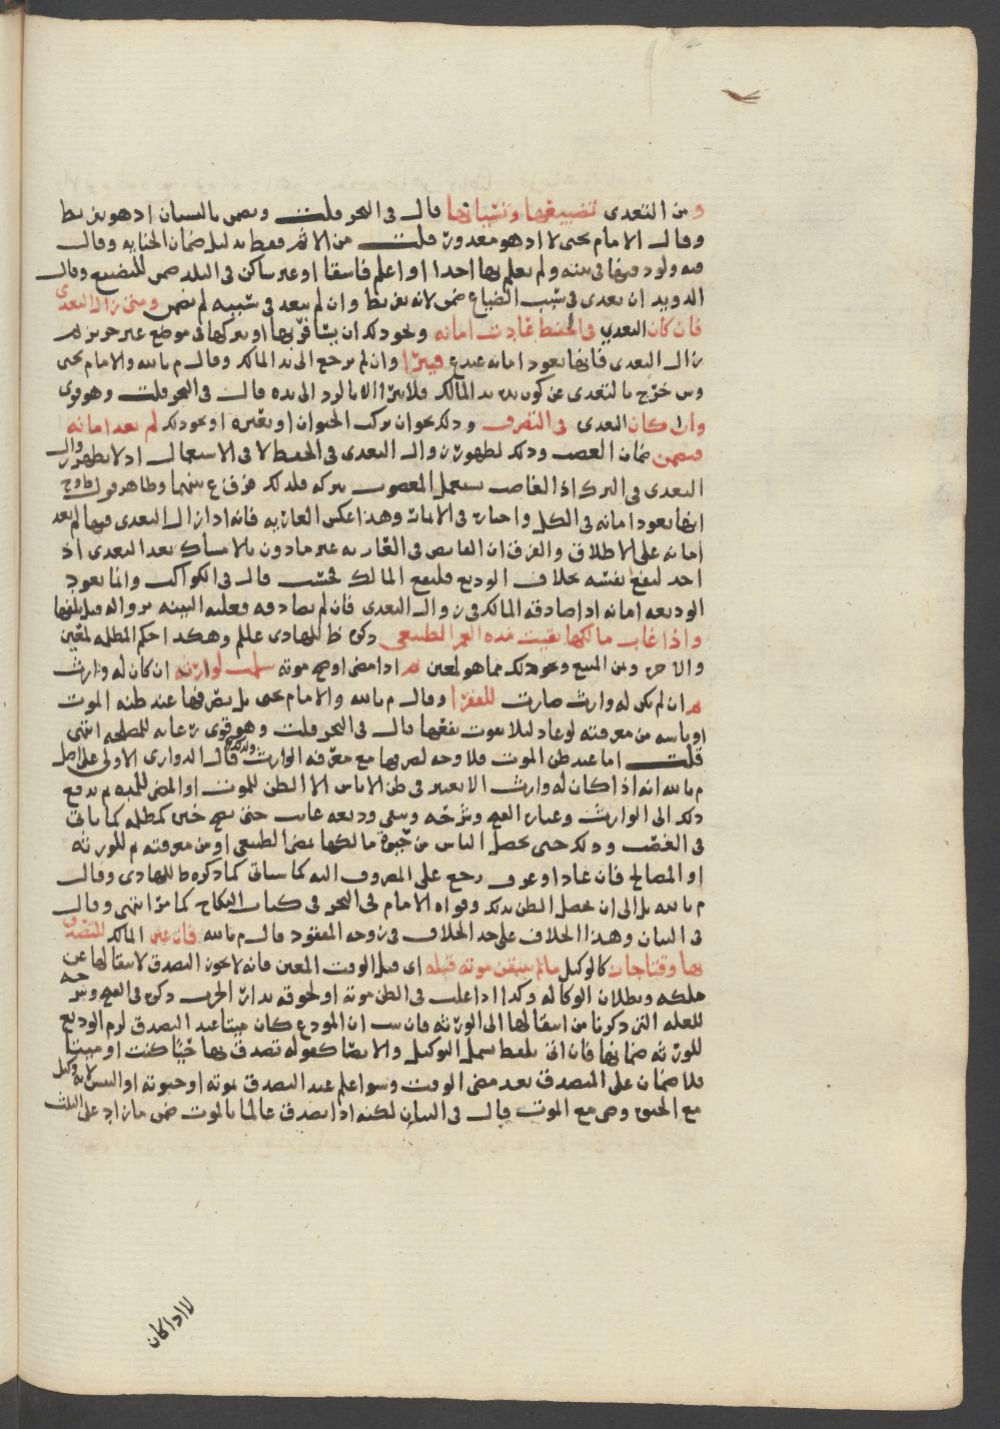 ومن التعدى تضييعها ونسيانها قال فى البحر قلت ويضمن بالنسيان اذ هو تفريط
وقال الامام يحيى لا اذ هو معذور قلت من الاثم فقط بدليل ضمان الجنايه وقال
فيه ولو دفنها فى بيته ولم يعلم بها احدا او اعلم فاسقا او غير ساكن فى البلد ضمن للتضييع وقال
الدويد ان تعدى فى سبب الضياع ضمن لانه تفريط وان لم يتعد فى سببه لم يضمن ومتى زال التعدى
فان كان التعدي فى الحفظ عادت امانه ونحو ذلك ان يسافر بها او يتركها فى موضع غير حريز ثم
زال التعدى فانها تعود امانه عندع فيبرا وان لم يرجع الى يد المالك وقال م بالله والامام يحيى
وس خرج بالتعدى عن كون يده يد المالك فلا يبرا الا بالرد الى يده قال فى البحر قلت وهو قوى
وان كان التعدى فى التصرف وذلك نحو ان يركب الحيوان او يعيره او نحو ذلك لم تعد امانه
فيضمن ضمان الغصب وذلك لظهور زوال التعدى فى الحفظ لا فى الاستعمال اذ لا يظهر زوال
التعدى فى الترك اذ الغاصب يستعمل المغصوب بتركه فلذلك فرق ع بينهما وظاهر قول ط وح
انها تعود امانه فى الكل واختاره فى الاثمار وهذا عكس العاريه فانه اذا زال التعدى فيها لم تعد
امانه على الاطلاق والفرق ان القابض فى العاريه غير ماذون بالامساك بعد التعدى اذ
اخذ لنفع نفسه بخلاف الوديع فلنفع المالك فحسب قال فى الكواكب وانما تعود
الوديعه امانه اذا صادقه المالك فى زوال التعدى فان لم يصادقه فعليه البينه بزواله قبل تلفها
واذا غاب مالكها بقيت مده العمر الطبيعى ذكره ط للهادى عللم وهكذا حكم المظلمه لمعين
والاجره وثمن المبيع ونحو ذلك مما هو لمعين ثم اذا مضى او صح موته سلمت لوارثه ان كان له وارث
ثم ان لم يكن له وارث صارت للفقرا وقال م بالله والامام يحيى بل يصرفها عند ظنه الموت
او ياسه من معرفته لو عاد ليلا يفوت نفعها قال فى البحر قلت وهو قوى رعايه للمصلحه انتهى
قلت اما عند ظن الموت فلا وجه لصرفها مع معرفه الوارث ولذلك قال الدوارى الاولى على اصل
م بالله انه اذا كان له وارث الا يعتبر فى ظن الاياس الا الظن للموت او المضى للمده ثم يدفع
ذلك الى الوارث وعباره الفتح وشرحه وتبقى وديعه غايب حتى يصح خبره كمظلمه كما ياتى
فى الغصب وذلك حتى يحصل الياس من حيوة مالكها بمضى الطبيعى او من معرفته ثم للورثه
او المصالح فان عاد او عرف رجع على المصروف اليه كما سياتى كما ذكره ط للهادى وقال
م بالله بل الى ان يحصل الظن بذلك وقواه الامام فى البحر فى كتاب النكاح كما مر انتهى وقال
فى البيان وهذا الخلاف على حد الخلاف فى زوجه المفقود قال م بالله فان عين المالك للتصدق
بها وقتا جاز كالوكيل ما لم يتيقن موته قبله اى قبل الوقت المعين فانه لا يجوز التصدق لانتقالها عن
ملكه وبطلان الوكاله وكذا اذا غلب فى الظن موته او لحوقه بدار الحرب ذكره فى الفتح وشرحه
للعله التى ذكرنا من انتقالها الى الورثه فان ان المودع كان ميتا عند التصدق لزم الوديع
للورثه ضمانها فان اتى بلفظ يشمل التوكيل والايصا كقوله تصدق بها حيًا كنت او ميتا
فلا ضمان على المتصدق بعد مضى الوقت وسوا علم عند التصدق بموته او حيوته او التبس لانه وكيل
مع الحيوة وصى مع الموت قال فى البيان لكنه اذا تصدق عالما بالموت ضمن ما زاد على الثلث
لا اذا كان